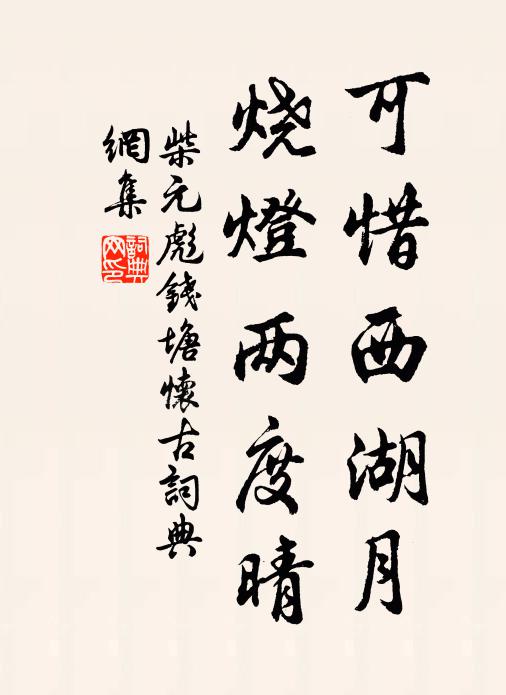 可惜西湖月
烧燈两度晴
柴元彪錢塘懷古詞典
網集
詞典
网印